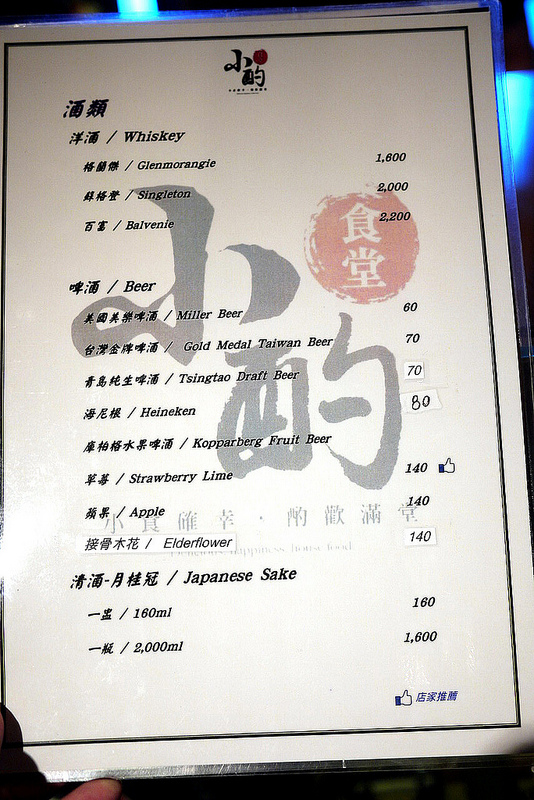 小酌
酒類
洋酒 / Whiskey
格蘭傑 / Glenmorangie 1,600
蘇格登 / Singleton 2,000
百富 / Balvenie 2,200
食堂
小酌
啤酒 / Beer
美國美樂啤酒 / Miller Beer 60
台灣金牌啤酒 / Gold Medal Taiwan Beer 70
青島純生啤酒 / Tsingtao Draft Beer 70
海尼根 / Heineken 80
庫柏格水果啤酒 / Kopparberg Fruit Beer
草莓 / Strawberry Lime 140
蘋果 / Apple 140
小食確幸・酌歡滿堂
接骨木花 / Elderflower 140
清酒-月桂冠 / Japanese Sake
一盅 / 160ml 160
一瓶 / 2,000ml 1,600
店家推薦